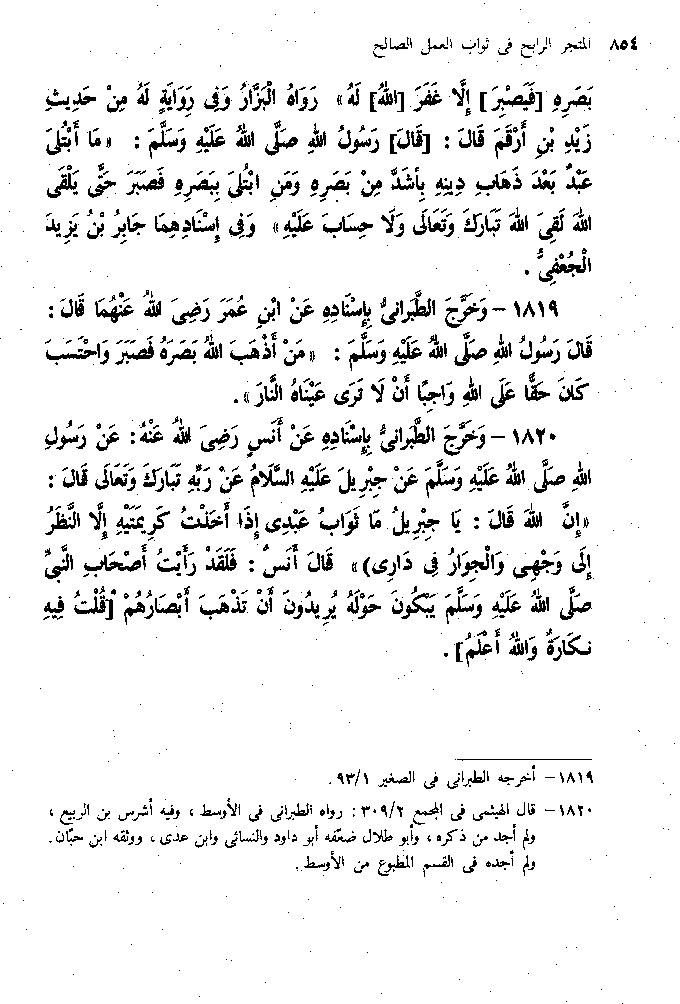 ٨٥٤ المتجر الرابح فى ثواب العمل الصالح
بَصَرِهِ [فَيَصْبِرَ] إِلَّا غَفَرَ [اللهُ] لَهُ» رَوَاهُ الْبَزَّارُ وَفِى رِوَايَةٍ لَهُ مِنْ حَدِيثِ
زَيْدِ بْنِ أَرْقَمَ قَالَ : [قَالَ] رَسُولُ اللهِ صَلَّى اللهُ عَلَيْهِ وَسَلَّمَ : «مَا أَبْتُلِىَ
عَبْدٌ بَعْدَ ذَهَابِ دِينِهِ بِأَشَدَّ مِنْ بَصَرِهِ وَمَنِ ابْتُلِىَ بِبَصَرِهِ فَصَبَرَ حَتَّى يَلْقَى
اللهَ لَقِىَ اللهَ تَبَارَكَ وَتَعَالَى وَلَا حِسَابَ عَلَيْهِ» وَفِى إِسْنَادِهِمَا جَابِرُ بْنُ يَزِيدَ
الْجُعْفِىُّ .
١٨١٩ – وَخَرَّجَ الطَّبَرانىُّ بِإِسْنَادِهِ عَنْ ابْنِ عُمَرَ رَضِىَ اللهُ عَنْهُمَا قَالَ :
قَالَ رَسُولُ اللهِ صَلَّى اللهُ عَلَيْهِ وَسَلَّمَ : «مَنْ أَذْهَبَ اللهُ بَصَرَهُ فَصَبَرَ وَاحْتَسَبَ
كَانَ حَقًّا عَلَى اللهِ وَاجِبًا أَنْ لَا تَرَى عَيْنَاهُ النَّارَ» .
١٨٢٠ – وَخَرَّجَ الطَّبَرانىُّ بِإِسْنَادِهِ عَنْ أَنَسٍ رَضِىَ اللهُ عَنْهُ : عَنْ رَسُولِ
اللهِ صَلَّى اللهُ عَلَيْهِ وَسَلَّمَ عَنْ جِبْرِيلَ عَلَيْهِ السَّلَامُ عَنْ رَبِّهِ تَبَارَكَ وَتَعَالَى قَالَ :
«إِنَّ اللهَ قَالَ : يَا جِبْرِيلُ مَا ثَوَابُ عَبْدِى إِذَا أَخَذْتُ كَرِيمَتَيْهِ إِلَّا النَّظَرُ
إِلَى وَجْهِى وَالْجِوَارُ فِى دَارِى)» قَالَ أَنَسٌ : فَلَقَدْ رَأَيْتُ أَصْحَابَ النَّبِىِّ
صَلَّى اللهُ عَلَيْهِ وَسَلَّمَ يَبْكُونَ حَوْلَهُ يُرِيدُونَ أَنْ تَذْهَبَ أَبْصَارُهُمْ [قُلْتُ فِيهِ
نكَارَةٌ وَاللهُ أَعْلَمُ] .
١٨١٩ – أخرجه الطبرانى فى الصغير ٩٣/١ .
١٨٢٠ – قال الهيثمى فى المجمع ٣٠٩/٢ : رواه الطبرانى فى الأوسط ، وفيه أشرس بن الربيع ،
ولم أجد من ذكره ، وأبو ظلال ضعّفه أبو داود والنسائى وابن عدى ، ووثقه ابن حبّان .
ولم أجده فى القسم المطبوع من الأوسط .